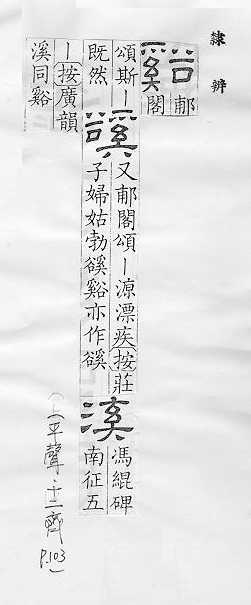 隸辨
谿
郙
閣
頌斯｜
既然
谿
又郙閣頌｜源漂疾按莊
子婦姑勃谿谿亦作谿
溪
馮緄碑
南征五
｜按廣韻
溪同谿
(上平聲·十二齊 P.103)